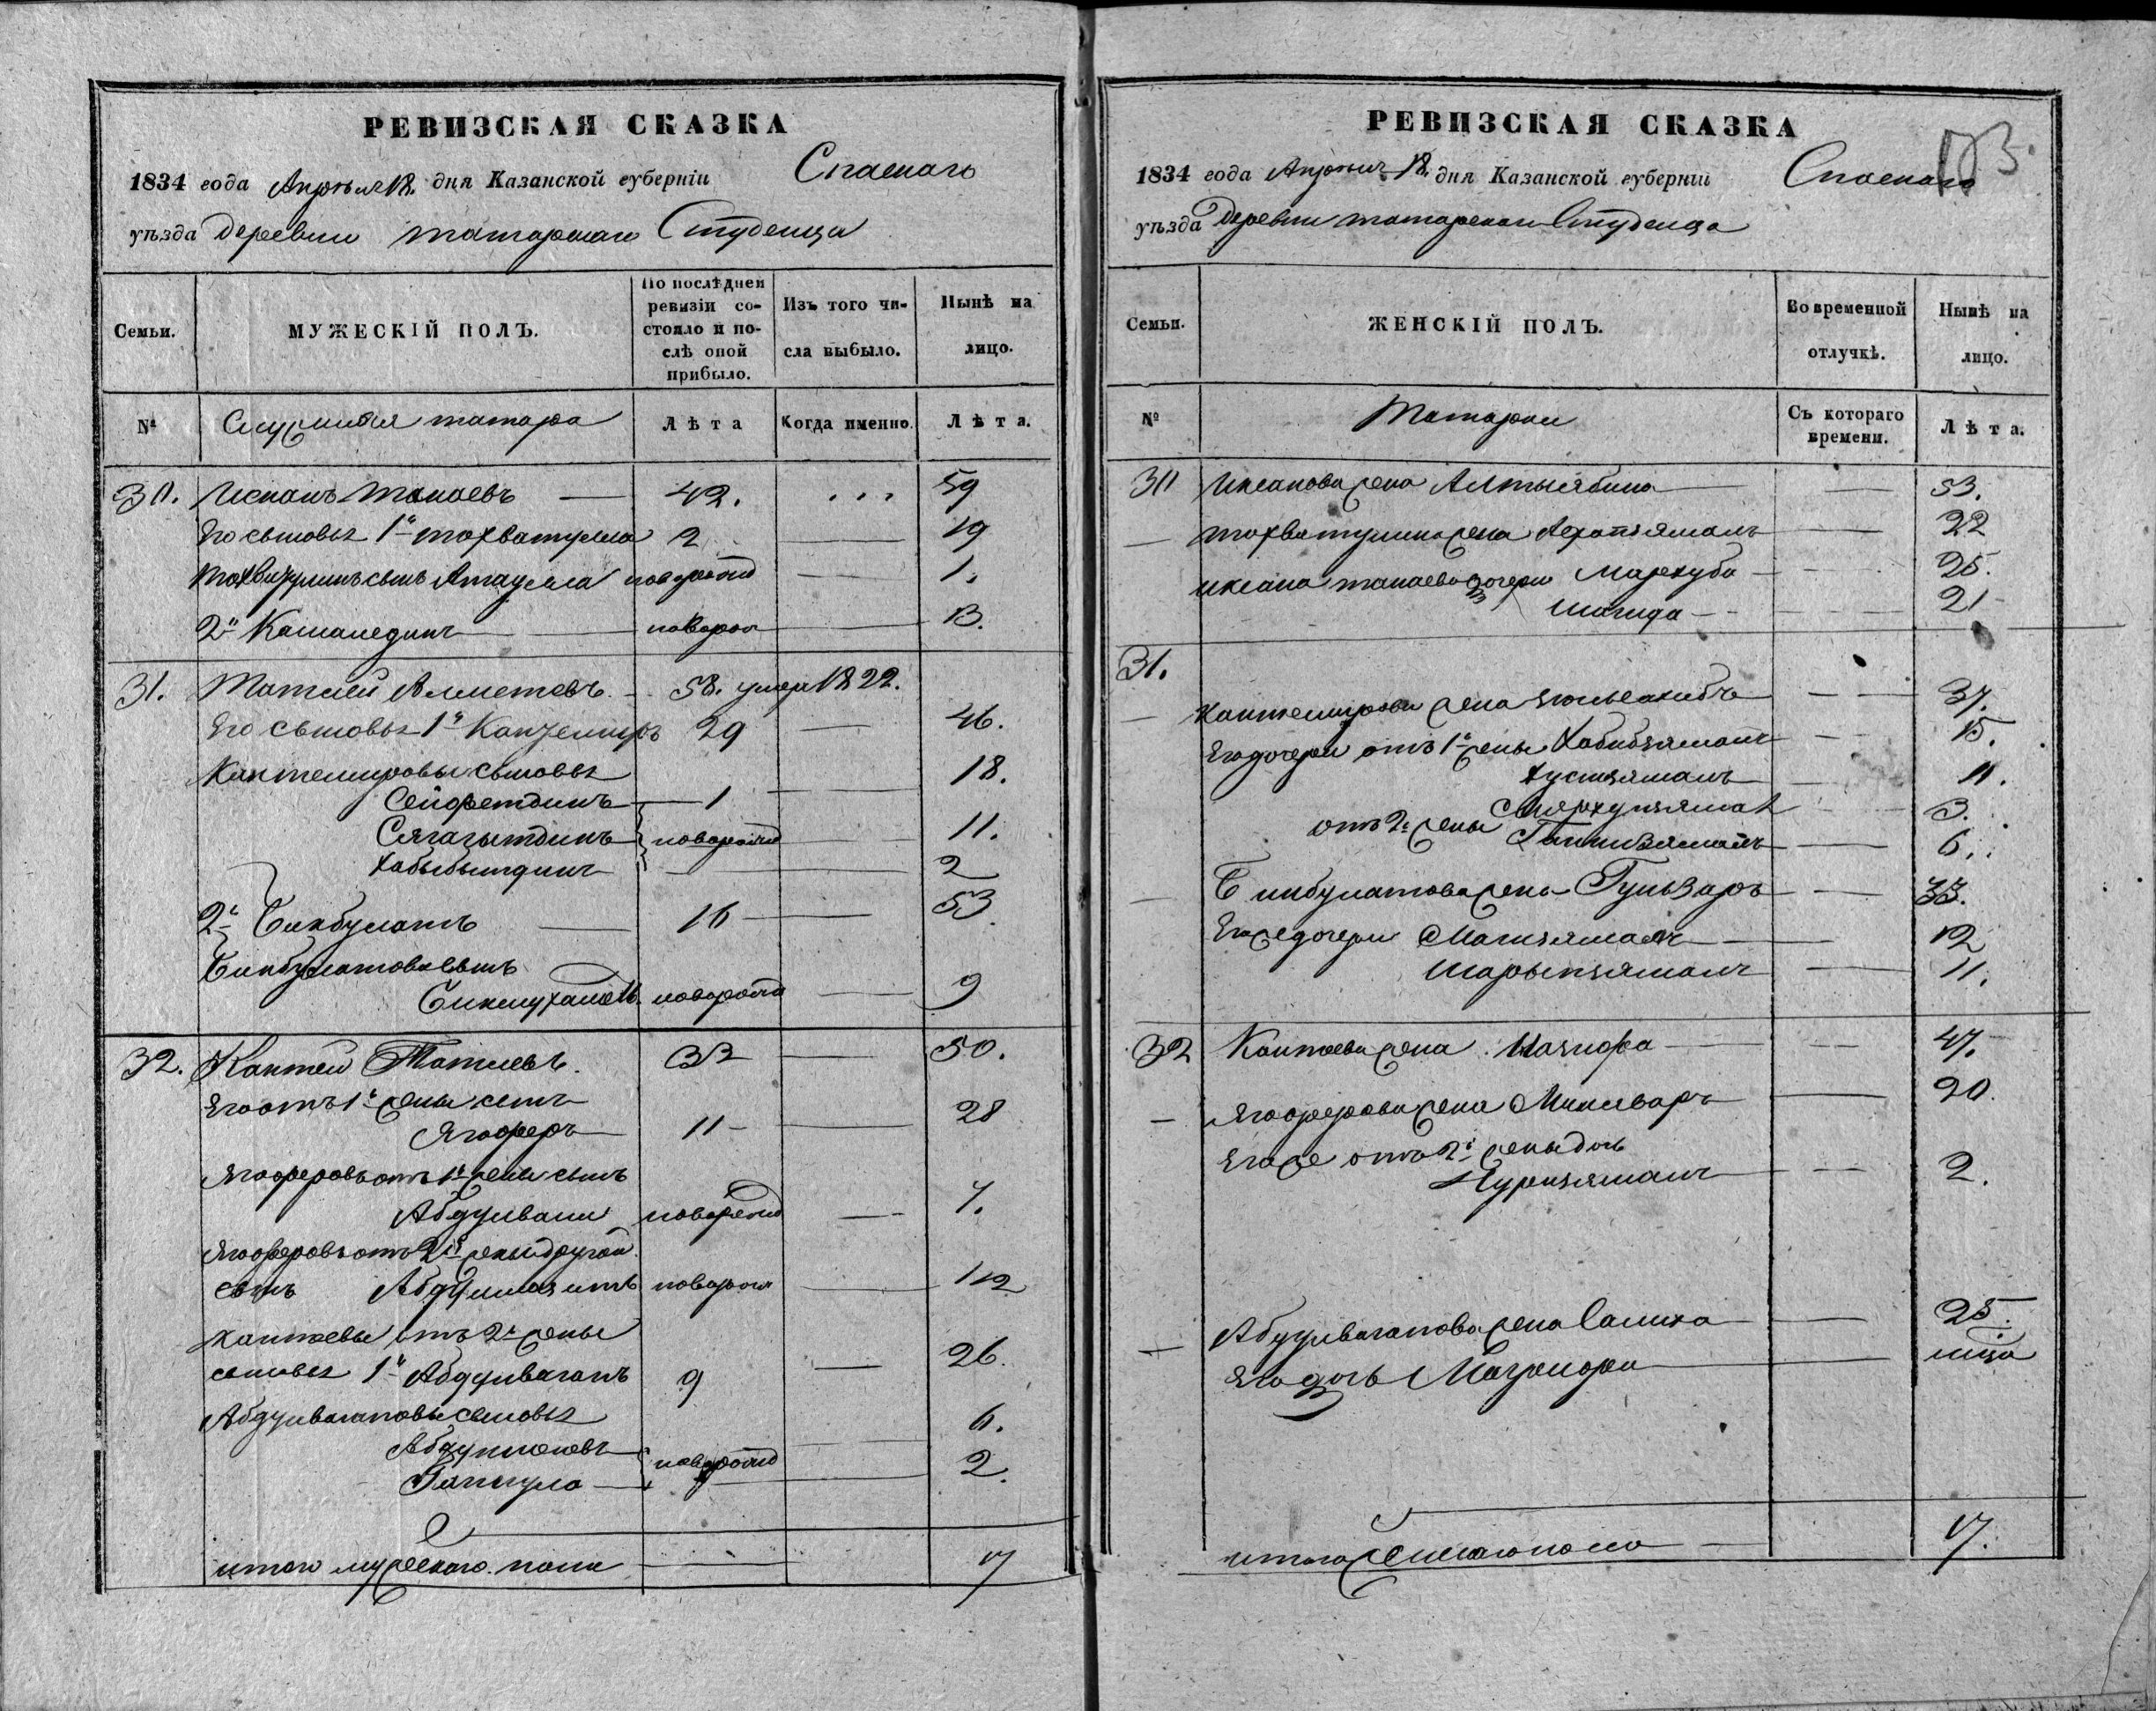 РЕВИЗСКАЯ СКАЗКА
1834 года Апреля 18. дня Казанской губерніи Спаскаго
уѣзда деревни татарскаго Студенца
Семьи.
МУЖЕСКІЙ ПОЛЪ.
По послѣдней ревизіи со-
стояло и по-
слѣ оной
прибыло.
Изъ того чи-
сла выбыло.
Нынѣ на
лицо.
№
Служилыя татара
Лѣта
Когда именно.
Лѣта.
30. 42. ... 59
Его сыновья 1й Тохватулла 2 19
сынъ Атаулла новорожд 1.
2й Камалединъ новорож 13.
31. Татлей Алметевъ 58. умеръ 1822.
Его сыновья 1й Кантемиръ 29 46.
Кантемировы сыновья
Сейфетдинъ 1 18.
Сягагытдинъ новорожд 11.
Хабыбытдинъ 2
2й Бикбулатъ 16 53
Бикбулатовъ сынъ
Бикмухаметь новорожд 9
32. Кантей Татлевъ. 33 50.
Его отъ 1й жены сынъ
Ягоферъ 11 28
Ягоферовъ отъ 1й жены сынъ
Абдулвали новорожд 7.
Ягоферовъ отъ 2й жены другой
сынъ новорож 1/12
Кантеевы отъ 2й жены
сыновья 1й Абдулваганъ 9 26.
Абдулвагановы сыновья
новорожд 6.
2.
итого мужескаго пола 17
РЕВИЗСКАЯ СКАЗКА
173.
1834 года Апреля 18. дня Казанской губерніи Спаскаго
уѣзда деревни татарскаго Студенца
Семьи.
ЖЕНСКІЙ ПОЛЪ.
Во временной
отлучкѣ.
Нынѣ на
лицо.
№
Татарки
Съ котораго
времени.
Лѣта.
30 Иксанова жена Алтынбика 53.
Тохватуллина жена 22
Иксана Танаева дочери Мархуба 25.
Шагида 21
31.
Кантемирова жена 37.
Его дочери отъ 1й жены Хабибзямалъ 15.
Хуснзямалъ 11.
отъ 2й жены 3.
6.
Бикбулатова жена Гульзаръ 33.
Его же дочери Магизямалъ 12
Шарыпзямалъ 11.
32 Кантеева жена 47.
Ягоферова жена 20.
Его же отъ 2й жены дочь
Нурензямалъ 2.
Абдулваганова жена Салиха 25.
Его дочь
итого женскаго пола 17.